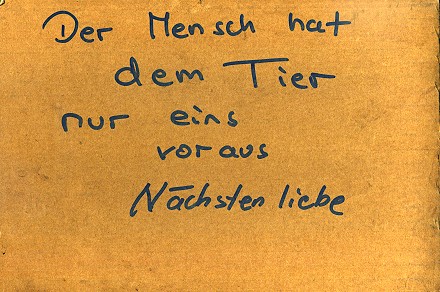 Der Mensch hat
dem Tier
nur eins
voraus
Nächstenliebe